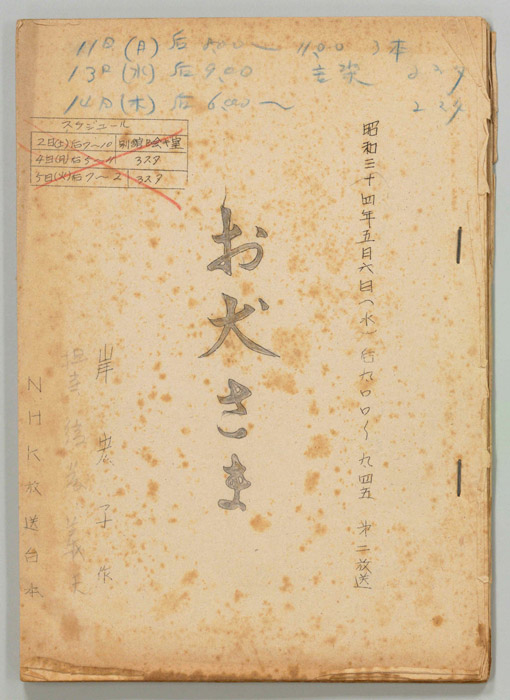 11日(月) 后 8.00〜 11.00 3本
13日(水) 后 9.00
14日(木) 后 6.00〜 223タ
スケジュール
2日(土)后7〜10 別館
4日(月)后5〜9 3スタ
5日(火)后7〜 3スタ
昭和三十四年五月六日(水)后九・〇〇〜九・四五 第二放送
お犬さま
岸 宏子作
NHK放送台本